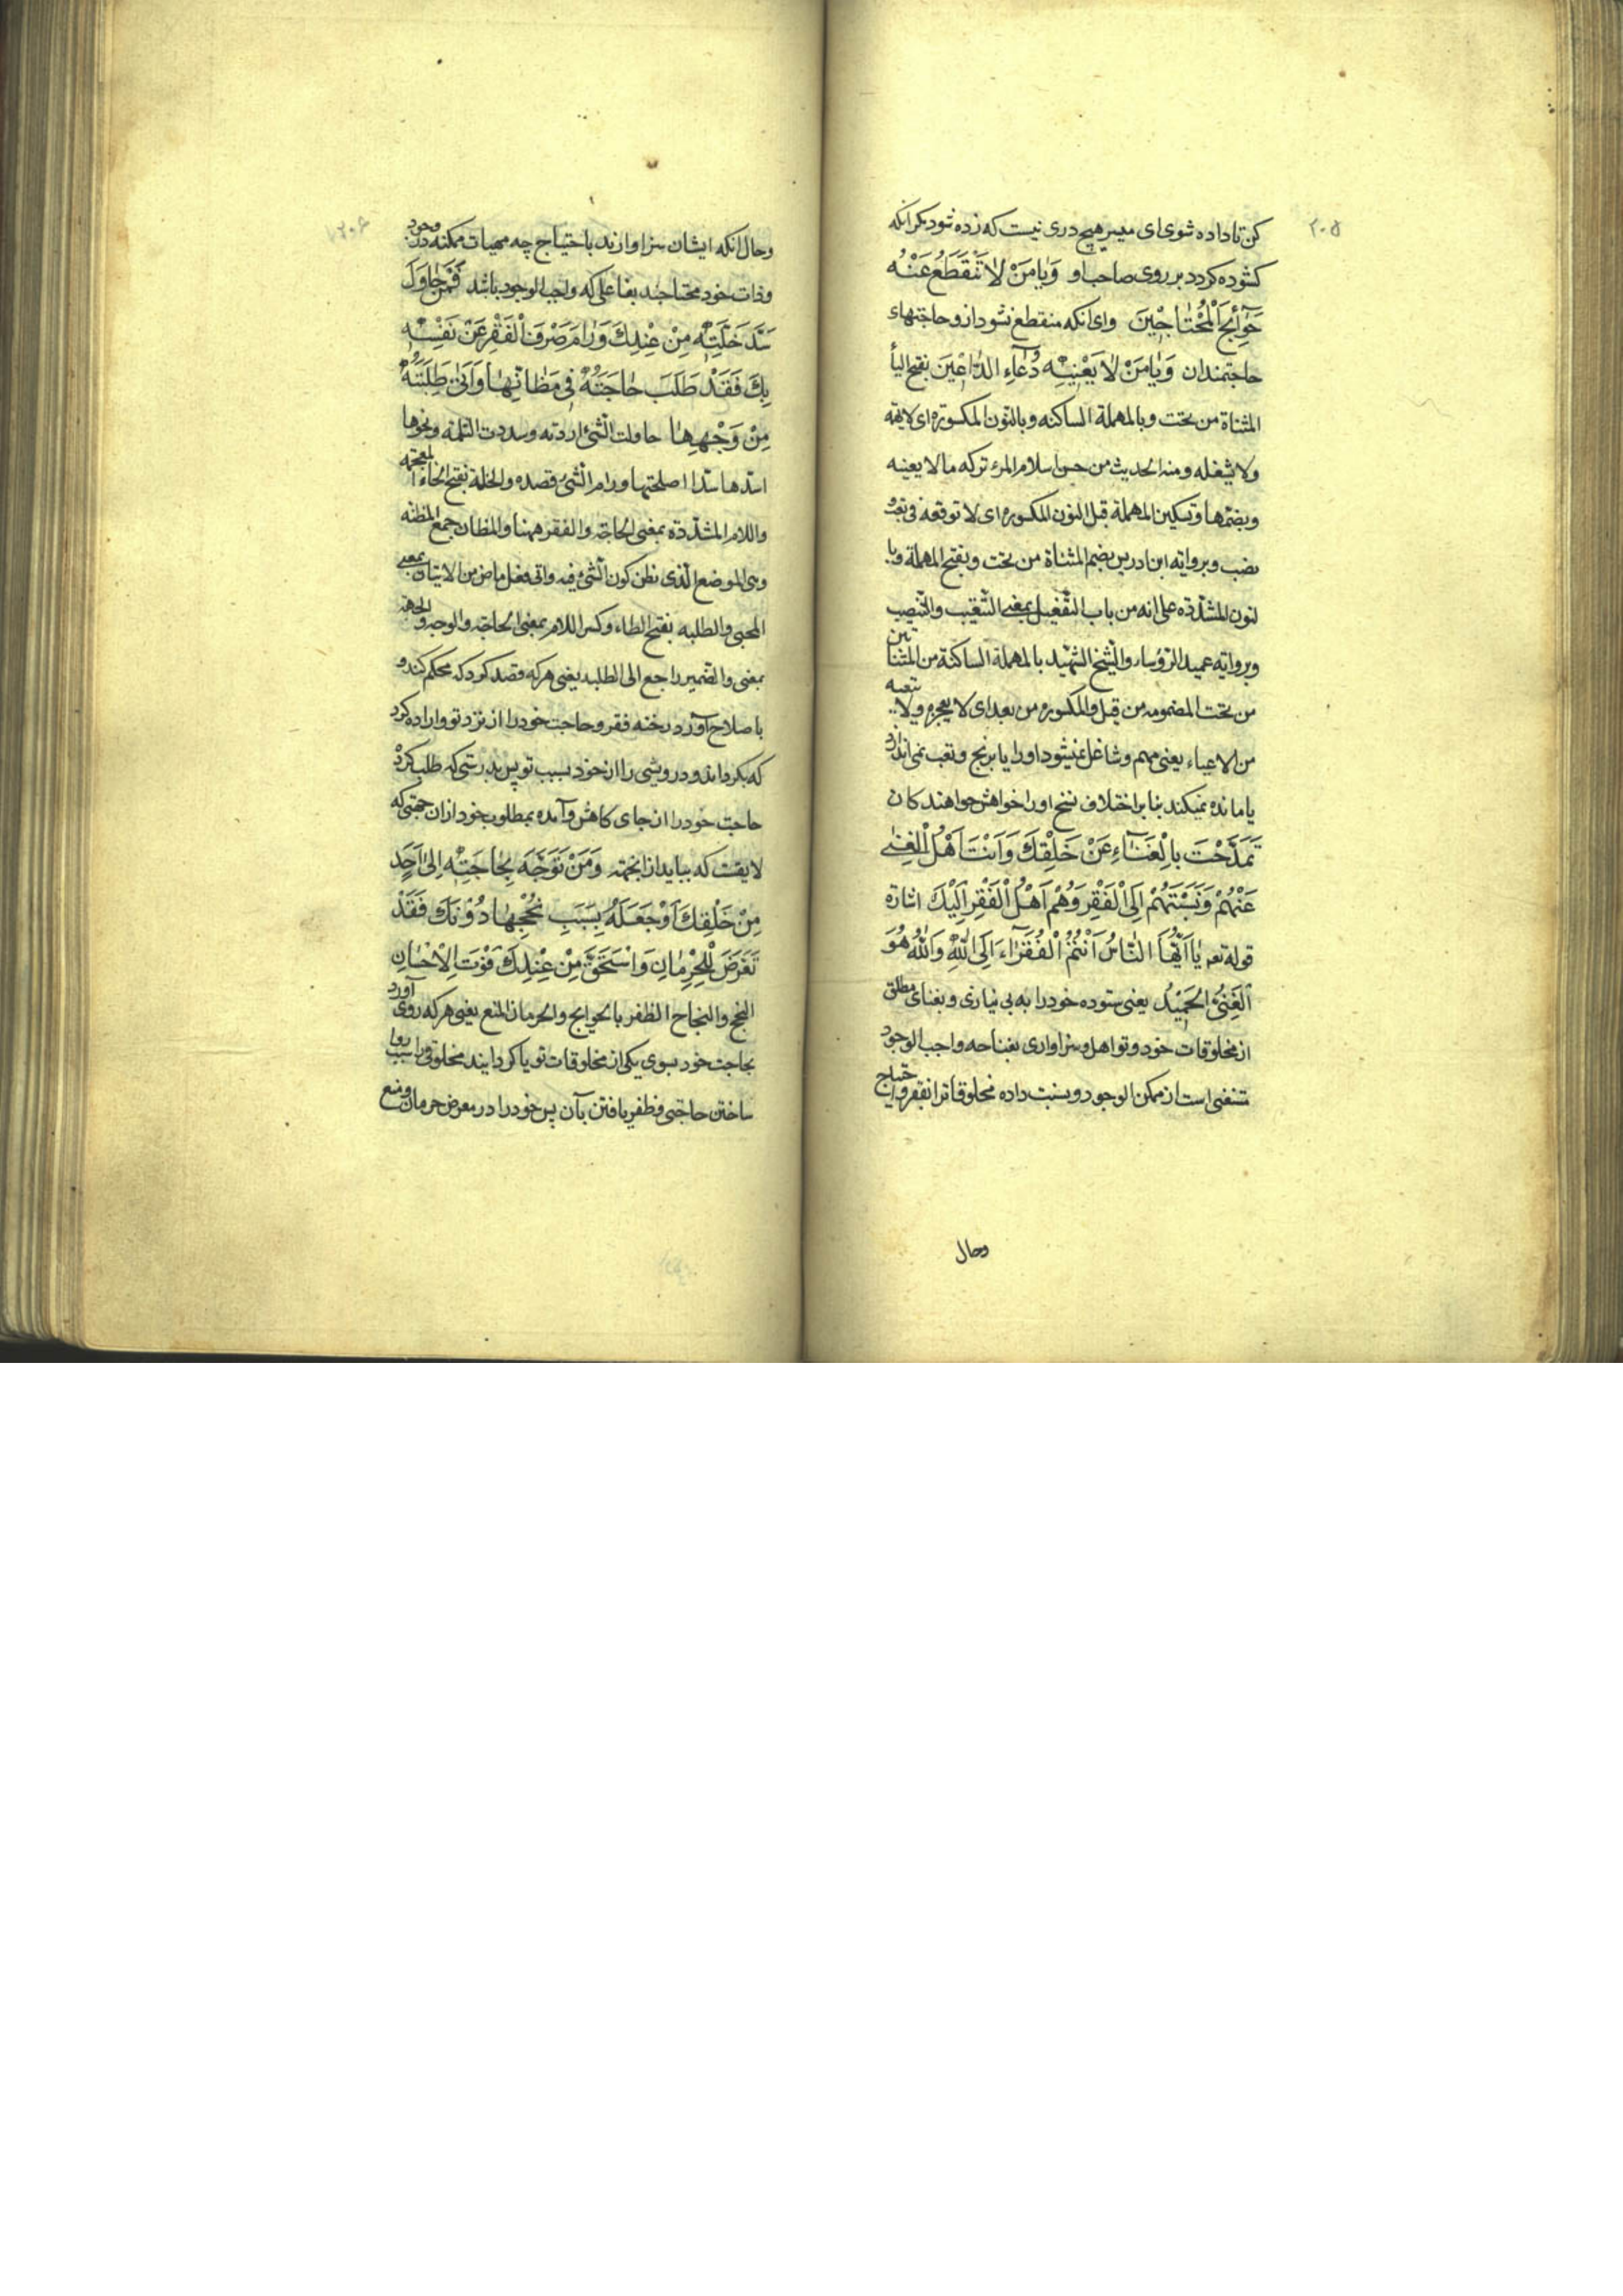 ۲۰۵
کن تا داده شوی ای میسر هیچ دری نیست که زده شود مکر آنکه
کشوده کردد بر روی صاحب او وَیٰا مَنْ لاٰ تَنْقَطِعُ عَنْهُ
حَوٰآئِجُ الْمُحْتٰاجْینَ وای آنکه منقطع نشود ازو حاجتهای
حاجتمندان وَیٰا مَنْ لاٰ یَعْنیٖهِ دُعٰآءِ الدّٰاعْینَ بفتح الیأ
المثناة من تحت وبالمهملة الساکنه وبالنون المکسوره ای لایهمه
ولا یشغله ومنه الحدیث من حسن اسلام المرء ترکه ما لا یعنیه
وبضمها وتسکین المهملة قبل النون المکسوره ای لا توقعه فی تعب و
نصب وبروایه ابن ادریس بضم المثناة من تحت وبفتح المهملة وبا
لنون المشدّده علی انه من باب التفعیل بمعنی التتعیب والتنصیب
وبروایه عمید الرؤساء والشیخ الشهید بالمهملة الساکنة من المثناتین
من تحت المضمومه من قبل والمکسوره من بعد ای لا یعجزه ولا یتعبه
من الاعیاء یعنی مهم وشاغل نمیشود اورا یا برنج وتعب نمی اندازد
یا مانده نمیکند بنا بر اختلاف نسخ اورا خواهش خواهندکان
تَمَدَّحْتَ بِالْغَنٰآءِ عَنْ خَلْقِكَ وَاَنْتَ اَهْلُ الْغِنٰی
عَنْهُمْ وَنَسَبْتَهُمْ اِلَی الْفَقْرِ وَهُمْ اَهْلُ الْفَقْرِ اِلَیْكَ اشارة
قوله تعه یٰا اَیُّهَا النّٰاسُ اَنْتُمُ الْفُقَرٰآءُ اِلَی اللّٰهِ وَاللّٰهُ هُوَ
اَلْغَنِیُّ الحَمْیدُ یعنی ستوده خود را به بی نیازی وبغنای مطلق
از مخلوقات خود وتو اهل وسزاواری بغنا چه واجب الوجود
مستغنی است از ممکن الوجود ونسبت داده مخلوقاترا بفقر واحتیاج
وحال
۲۰۶
وحال آنکه ایشان سزاوارند باحتیاج چه مهیات ممکنه در وجود
وذات خود محتاجند بفاعلی که واجب الوجود باشد فَمَنْ حٰاوَلَ
سَدَّ خَلَّتِهٖ مِنْ عِنْدِكَ وَرٰامَ صَرْفَ الْفَقْرِ عَنْ نَفْسِهٖ
بِكَ فَقَدْ طَلَبَ حٰاجَتَهُ فیٖ مَظٰانِّهٰا وَاَتٰی طَلِبَتَهُ
مِنْ وَجْهِهٰا حاولت الشئ اردته وسددت الثلمة ونحوها
اسدها سدا اصلحتها ورام الشئ قصده والخلة بفتح الخاء المعجمة
واللام المشدّدة بمعنی الحاجة والفقر ههنا والمظان جمع المظنه
وهی الموضع الذی نظن کون الشئ فیه واتی فعل ماض من الاتیان بمعنی
المجیئ والطلبه بفتح الطاء وکسر اللام بمعنی الحاجة والوجه والجهة
بمعنی والضمیر راجع الی الطلبه یعنی هر که قصد کرد که محکم کند و
باصلاح آورد رخنه فقر وحاجت خود را از نزد تو واراده کرد
که بکرداند ودرویشی را از خود بسبب تو پس بدرستی که طلب کرد
حاجت خود را از جای کاهش وآمده بمطلوب خود از ان جهتی که
لایقست که بیاید از انجهته وَمَنْ تَوَجَّهَ بِحٰاجَتِهٖ اِلٰی اَحَدٍ
مِنْ خَلْقِكَ اَوْ جَعَلَهُ بِسَبَبِ نُجْحِهٰا دُوْنَكَ فَقَدْ
تَعَرَّضَ لِلْحِرْمٰانِ وَاسْتَحَقَّ مِنْ عِنْدِكَ فَوْتَ الْاِحْسٰانِ
النجح والنجاح الظفر بالحوایج والحرمان المنع یعنی هر که روی آورد
بحاجت خود بسوی یکی از مخلوقات تو یا کردانید مخلوقی را سبب روا
ساختن حاجتی وظفر یافتن بآن پس خود را در معرض حرمان ومنع